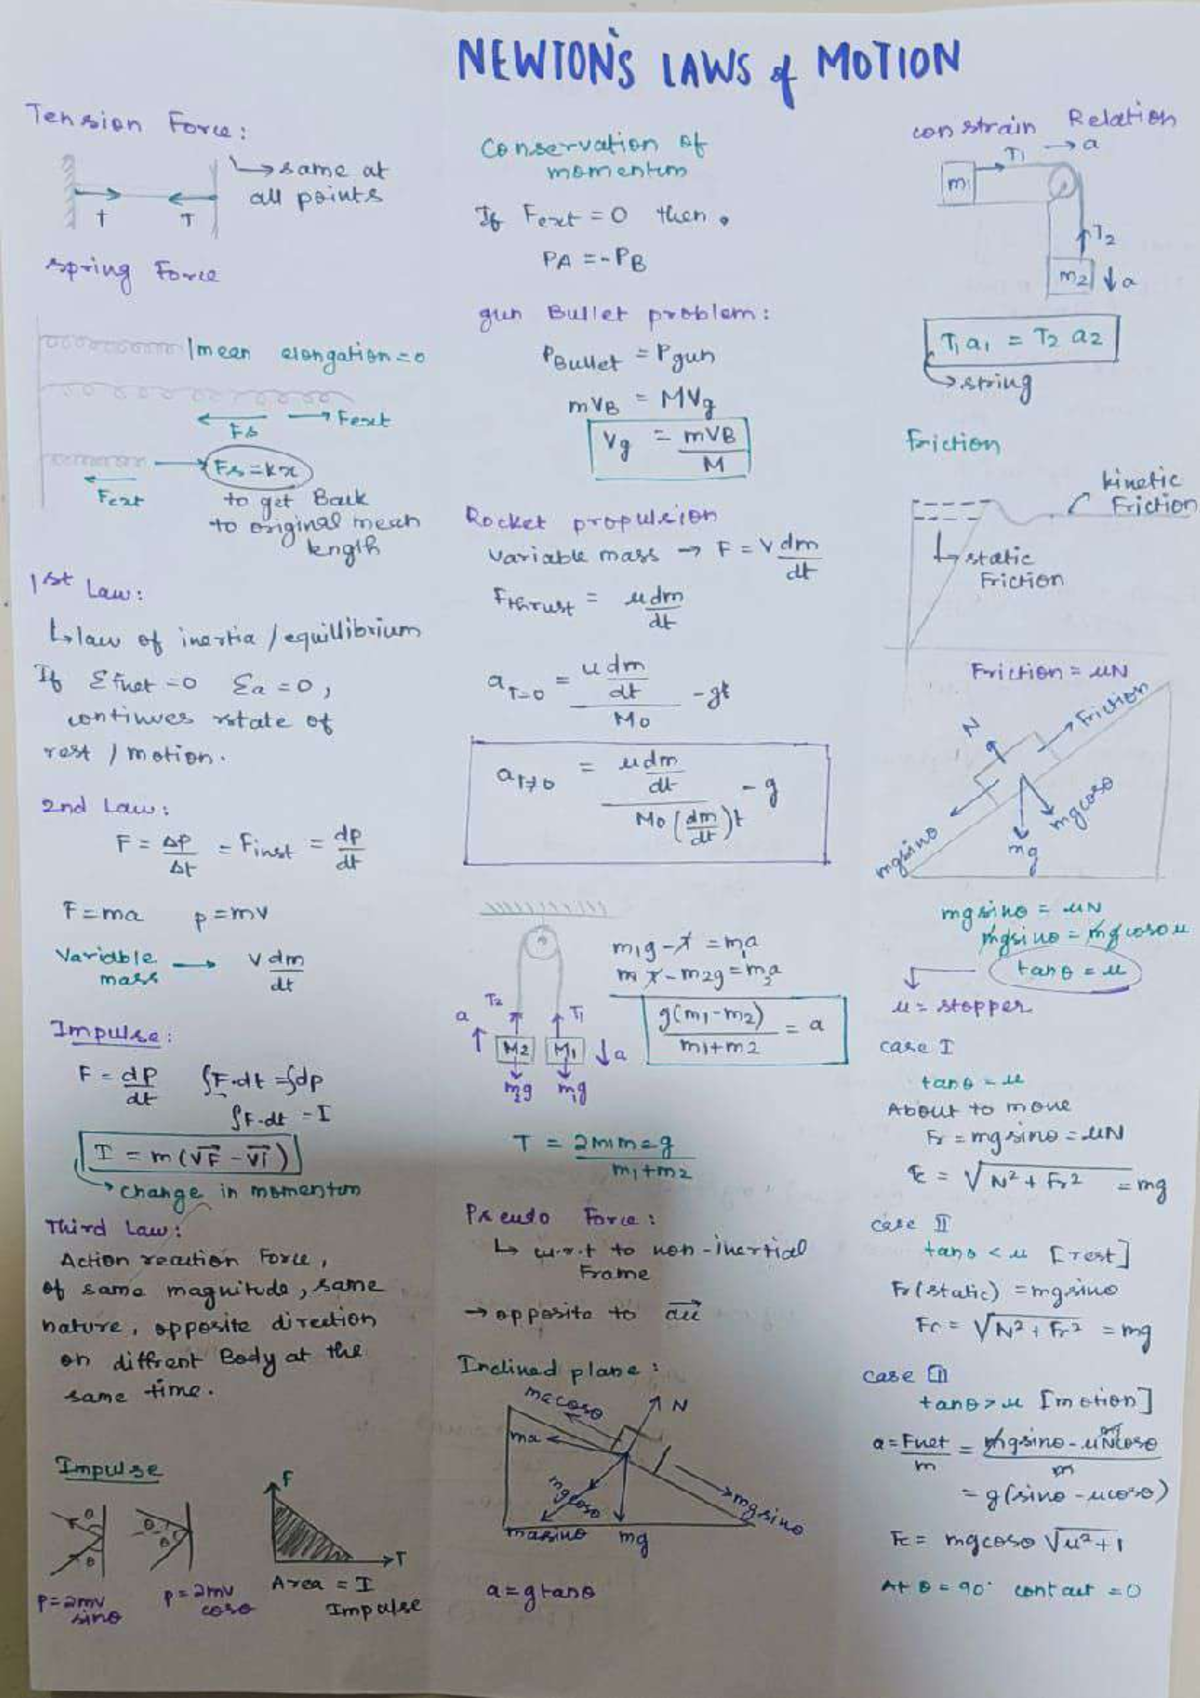 NEWTON'S LAWS of MOTION
Tension Force:
→ same at
all points
T
T
spring Force
mean elongation = 0
Fs
Fext
Fs = kx
Fext
to get Back
to original mean
length
1st Law:
↳ law of inertia / equillibrium
If ΣFnet = 0 Σa = 0,
continues state of
rest / motion.
2nd Law:
F = Δp/Δt = Finst = dp/dt
F = ma p = mv
Variable mass → v dm/dt
Impulse:
F = dp/dt ∫F·dt = ∫dp
∫F·dt = I
I = m(vF - vi)
→ change in momentum
Third Law:
Action reaction Force,
of same magnitude, same
nature, opposite direction
on diffrent Body at the
same time.
Impulse
θ
θ
θ
p = 2mv
sinθ
p = 2mv
cosθ
F
T
Area = I
Impulse
Conservation of
momentum
If Fext = 0 then.
PA = -PB
gun Bullet problem:
PBullet = Pgun
mVB = MVg
Vg = mVB/M
Rocket propulsion
Variable mass → F = v dm/dt
Fthrust = u dm/dt
aT=0 = (u dm/dt)/M0 - gt
aT≠0 = (u dm/dt)/(M0 (dm/dt)t) - g
m1g - T = m1a
T - m2g = m2a
g(m1-m2)/(m1+m2) = a
T2
T1
a
M2
M1
a
m2g
m1g
T = 2m1m2g/(m1+m2)
Pseudo Force:
↳ w.r.t to non-inertial
Frame
→ opposite to
Inclined plane:
macosθ
N
ma
mgcosθ
masinθ
mg
mgsinθ
a = gtanθ
constrain Relation
T1
→ a
m1
T2
m2
↓ a
T1 a1 = T2 a2
→ string
Friction
kinetic
Friction
static
Friction
Friction = μN
N
Friction
mgsinθ
mg
mgcosθ
mgsinθ = μN
mgsinθ = mgcosθ μ
tanθ = μ
μ = stopper
case I
tanθ = μ
About to move
Fr = mgsinθ = μN
Fc = √N² + Fr² = mg
case II
tanθ < μ [rest]
Fr(static) = mgsinθ
Fc = √N² + Fr² = mg
case III
tanθ > μ [motion]
a = Fnet/m = mgsinθ - μmgcosθ/m
= g(sinθ - μcosθ)
Fc = mgcosθ √μ² + 1
At θ = 90° contact = 0